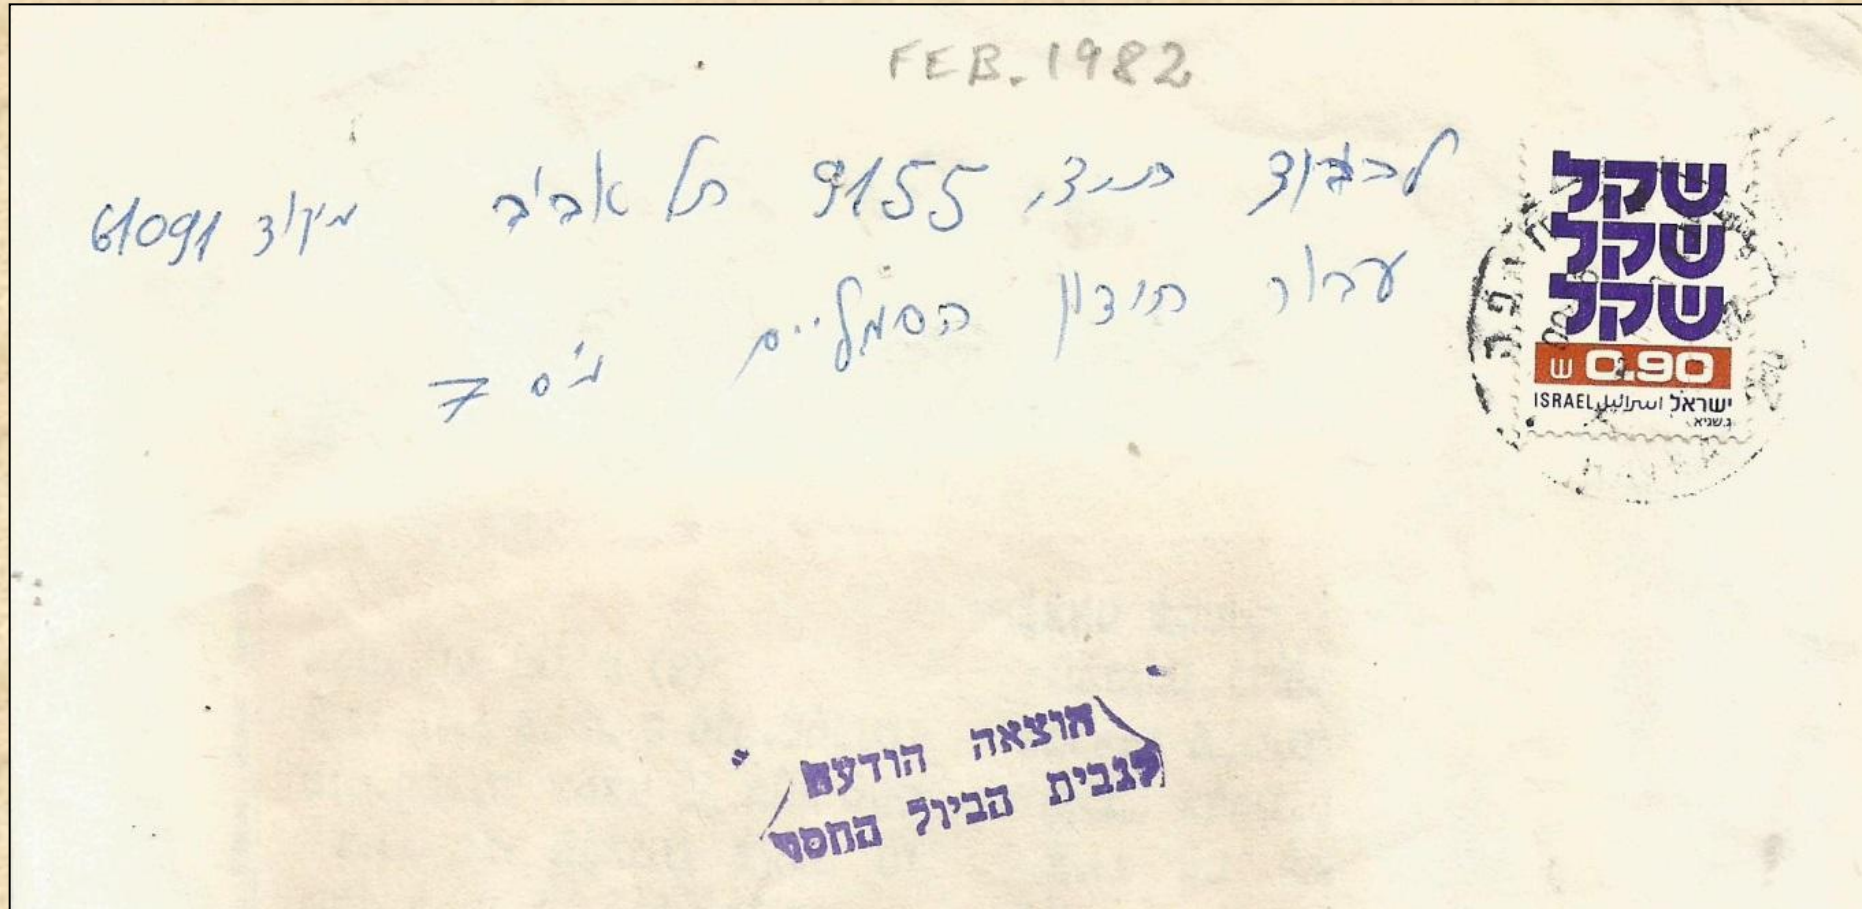 FEB. 1982
לכבוד ת.ד. 9155 תל אביב מיקוד 61091
עבור חידון הסמליים מ'ס 7
שקל
שקל
שקל
ש 0.90
ISRAEL اسرائيل ישראל
ג.שגיא
הוצאה הודעה
לגבית הביול החסר